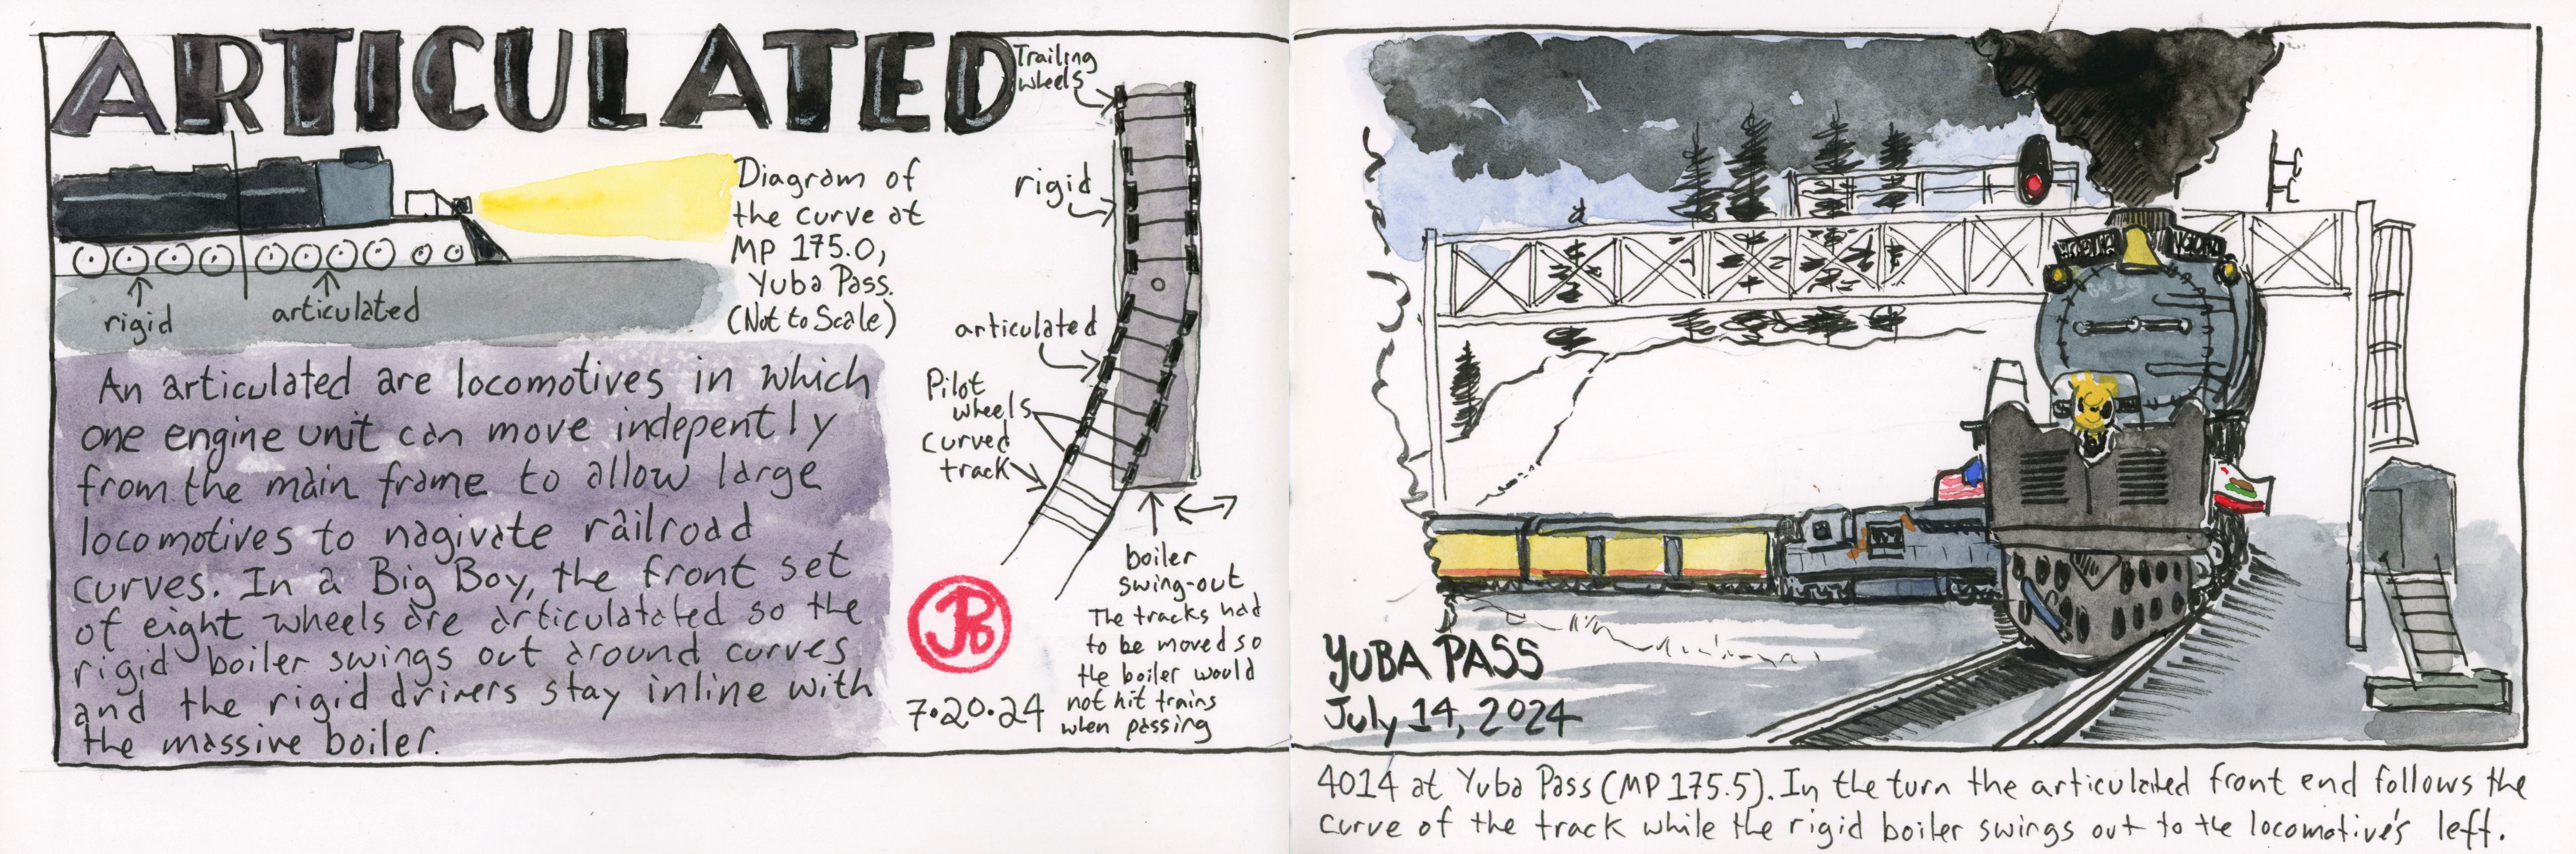 ARTICULATED
rigid
articulated
Diagram of
the curve at
MP 175.0,
Yuba Pass.
(Not to Scale)
An articulated are locomotives in which
one engine unit can move indepently
from the main frame to allow large
locomotives to nagivate railroad
curves. In a Big Boy, the front set
of eight wheels are articulatated so the
rigid boiler swings out around curves
and the rigid drivers stay inline with
the massive boiler.
Trailing
wheels
rigid
articulated
Pilot
wheels
curved
track
boiler
swing-out
The tracks had
to be moved so
the boiler would
not hit trains
when passing
JPB
7·20·24
YUBA PASS
July 14, 2024
4014 at Yuba Pass (MP 175.5). In the turn the articulated front end follows the
curve of the track while the rigid boiler swings out to the locomotive's left.